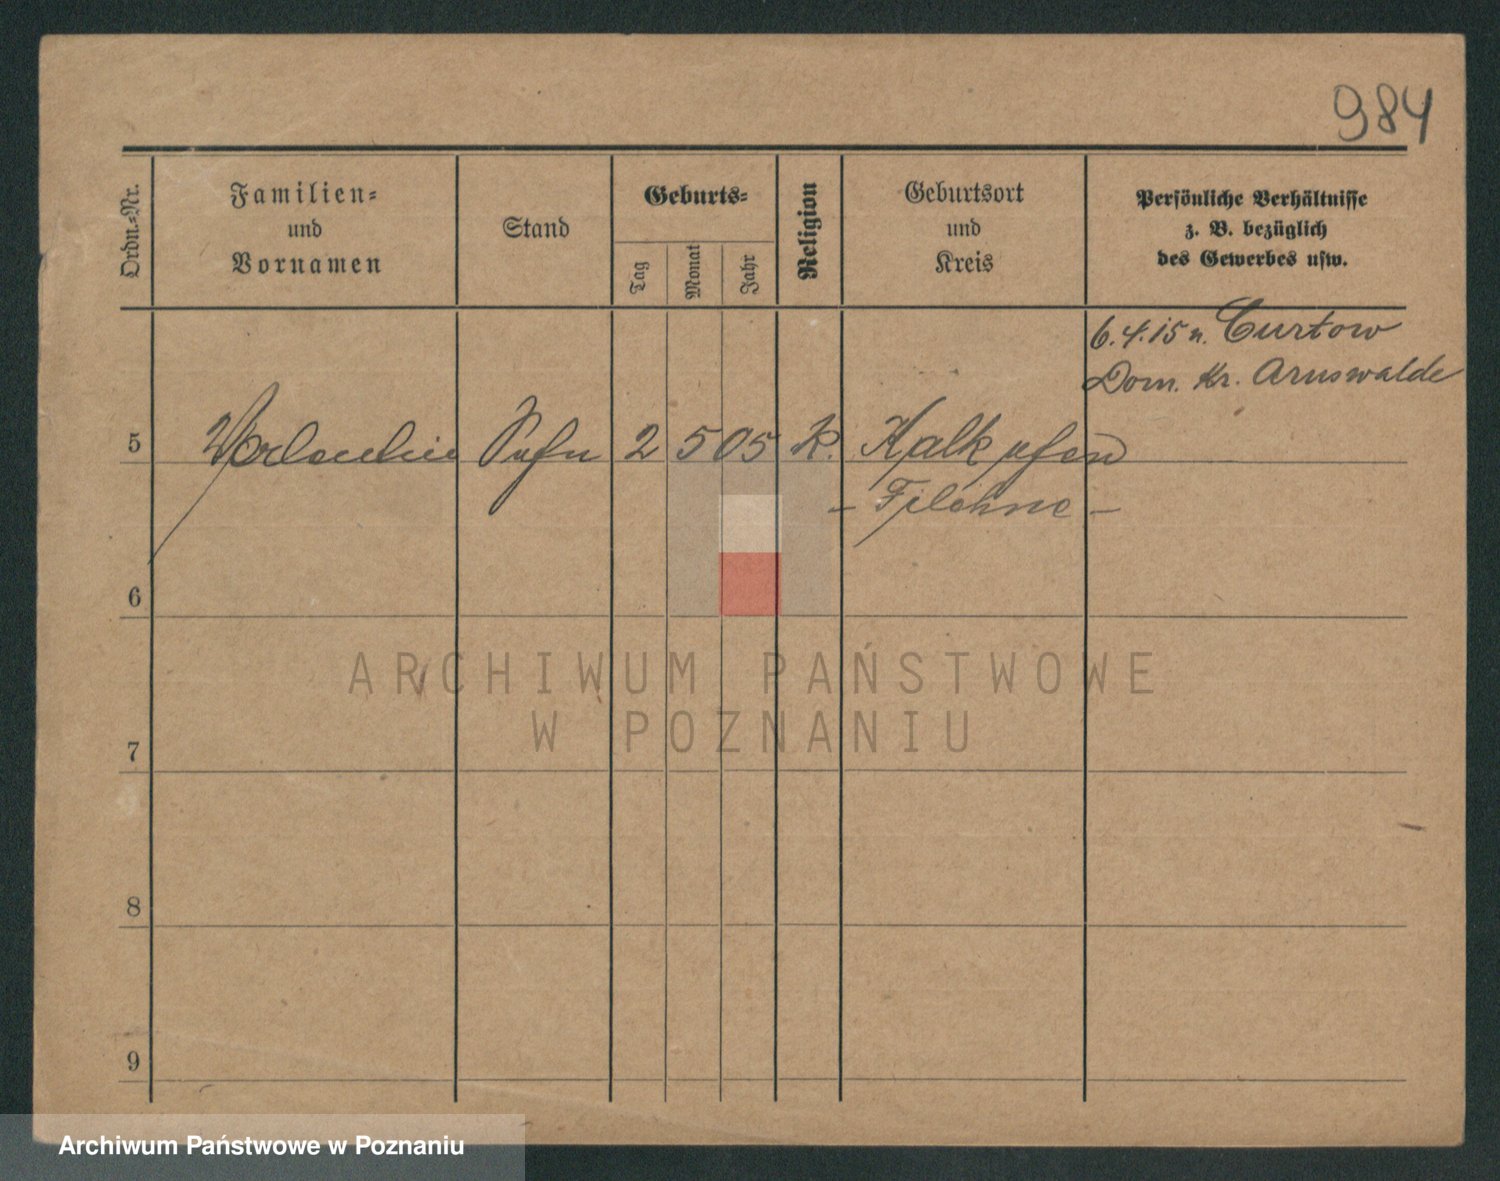 984
Ordn.-Nr.
Familien-
und
Vornamen
Stand
Geburts-
Tag
Monat
Jahr
Religion
Geburtsort
und
Kreis
Persönliche Verhältnisse
z. B. bezüglich
des Gewerbes usw.
6.4.15 n. Curtow
Dom. Kr. Arnswalde
5 2 5 05 K. Kalkofen
- Filehne -
6
7
8
9
ARCHIWUM PAŃSTWOWE
W POZNANIU
Archiwum Państwowe w Poznaniu